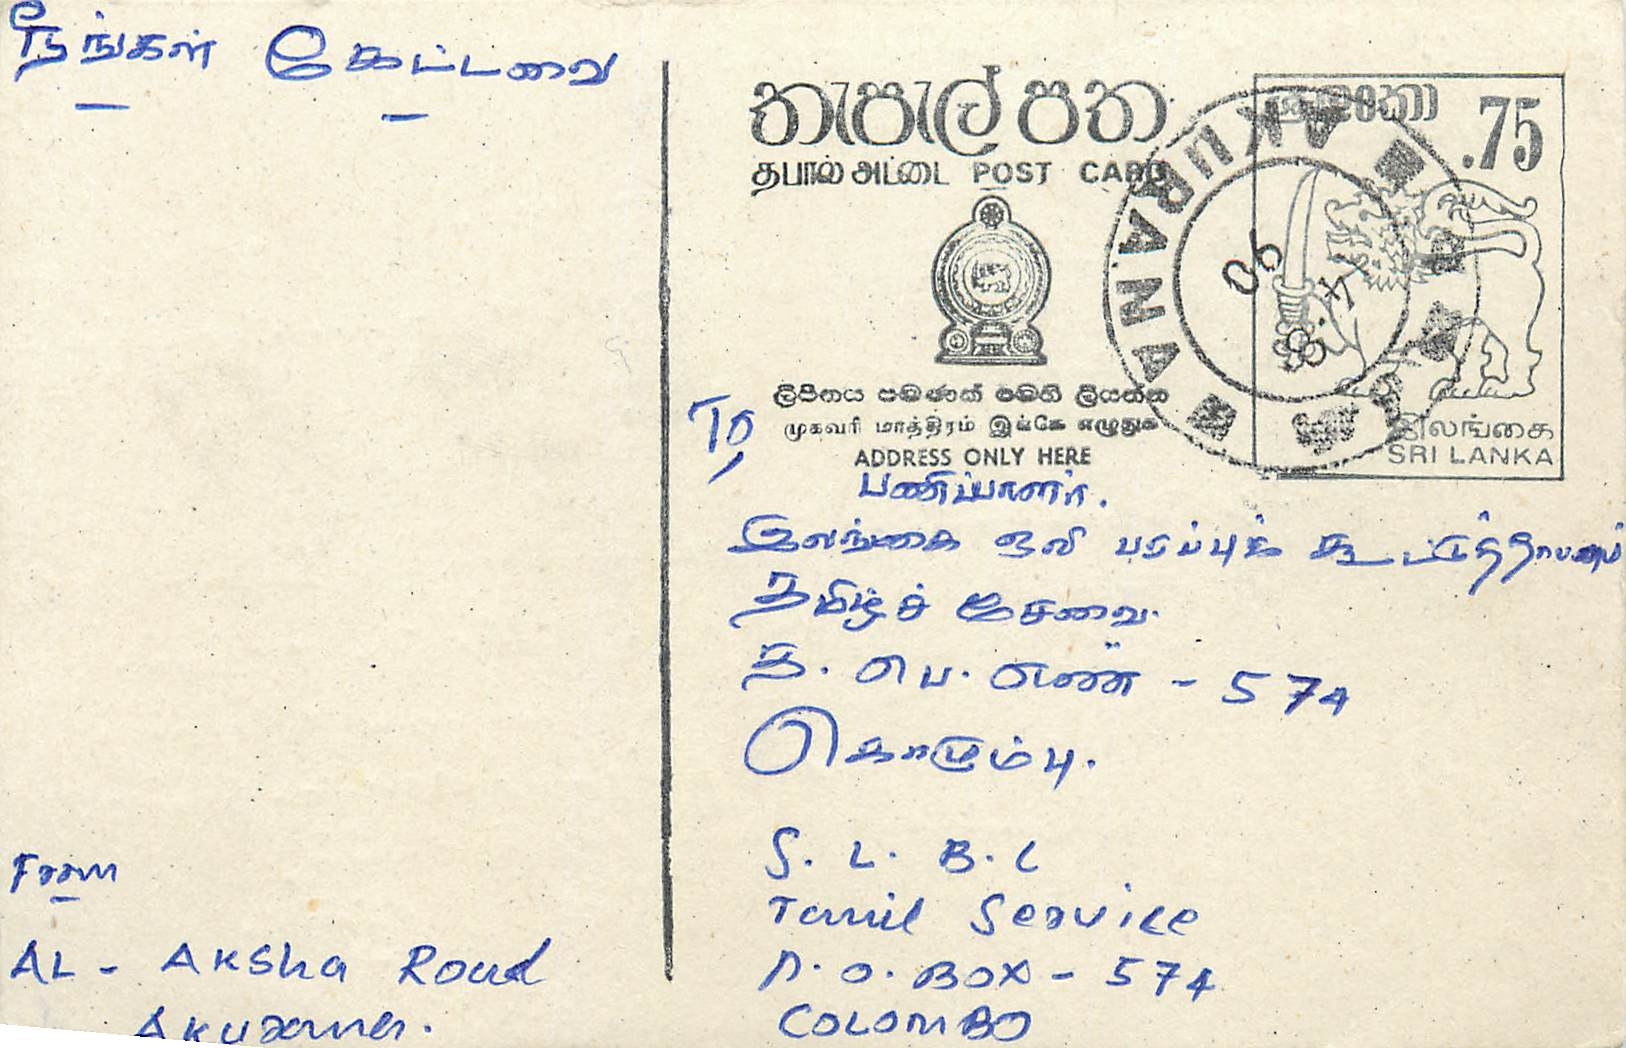 நீங்கள் கேட்டவை
තැපැල් පත
தபால் அட்டை POST CARD
ශ්‍රී ලංකා .75
AKURANA
90
ලිපිනය පමණක් මෙහි ලියන්න
முகவரி மாத்திரம் இங்கே எழுதுக
ADDRESS ONLY HERE
இலங்கை
SRI LANKA
To,
பணிப்பாளர்.
இலங்கை ஒலி பரப்புக் கூட்டுத்தாபனம்
தமிழ்ச் சேவை.
த. பெ. எண் - 574
கொழும்பு.
S. L. B. C
Tamil Service
P. O. BOX - 574
COLOMBO
From
AL - AKsha Road
Akurana.